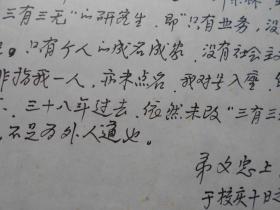 三有三无"的研究生，即"只有业务，没
。只有个人的成名成家，没有社会主
非指我一人，亦未点名，我对号入座
三十八年过去，依然未改"三有三
，不足为外人道也。
弟文忠上
于校实十日